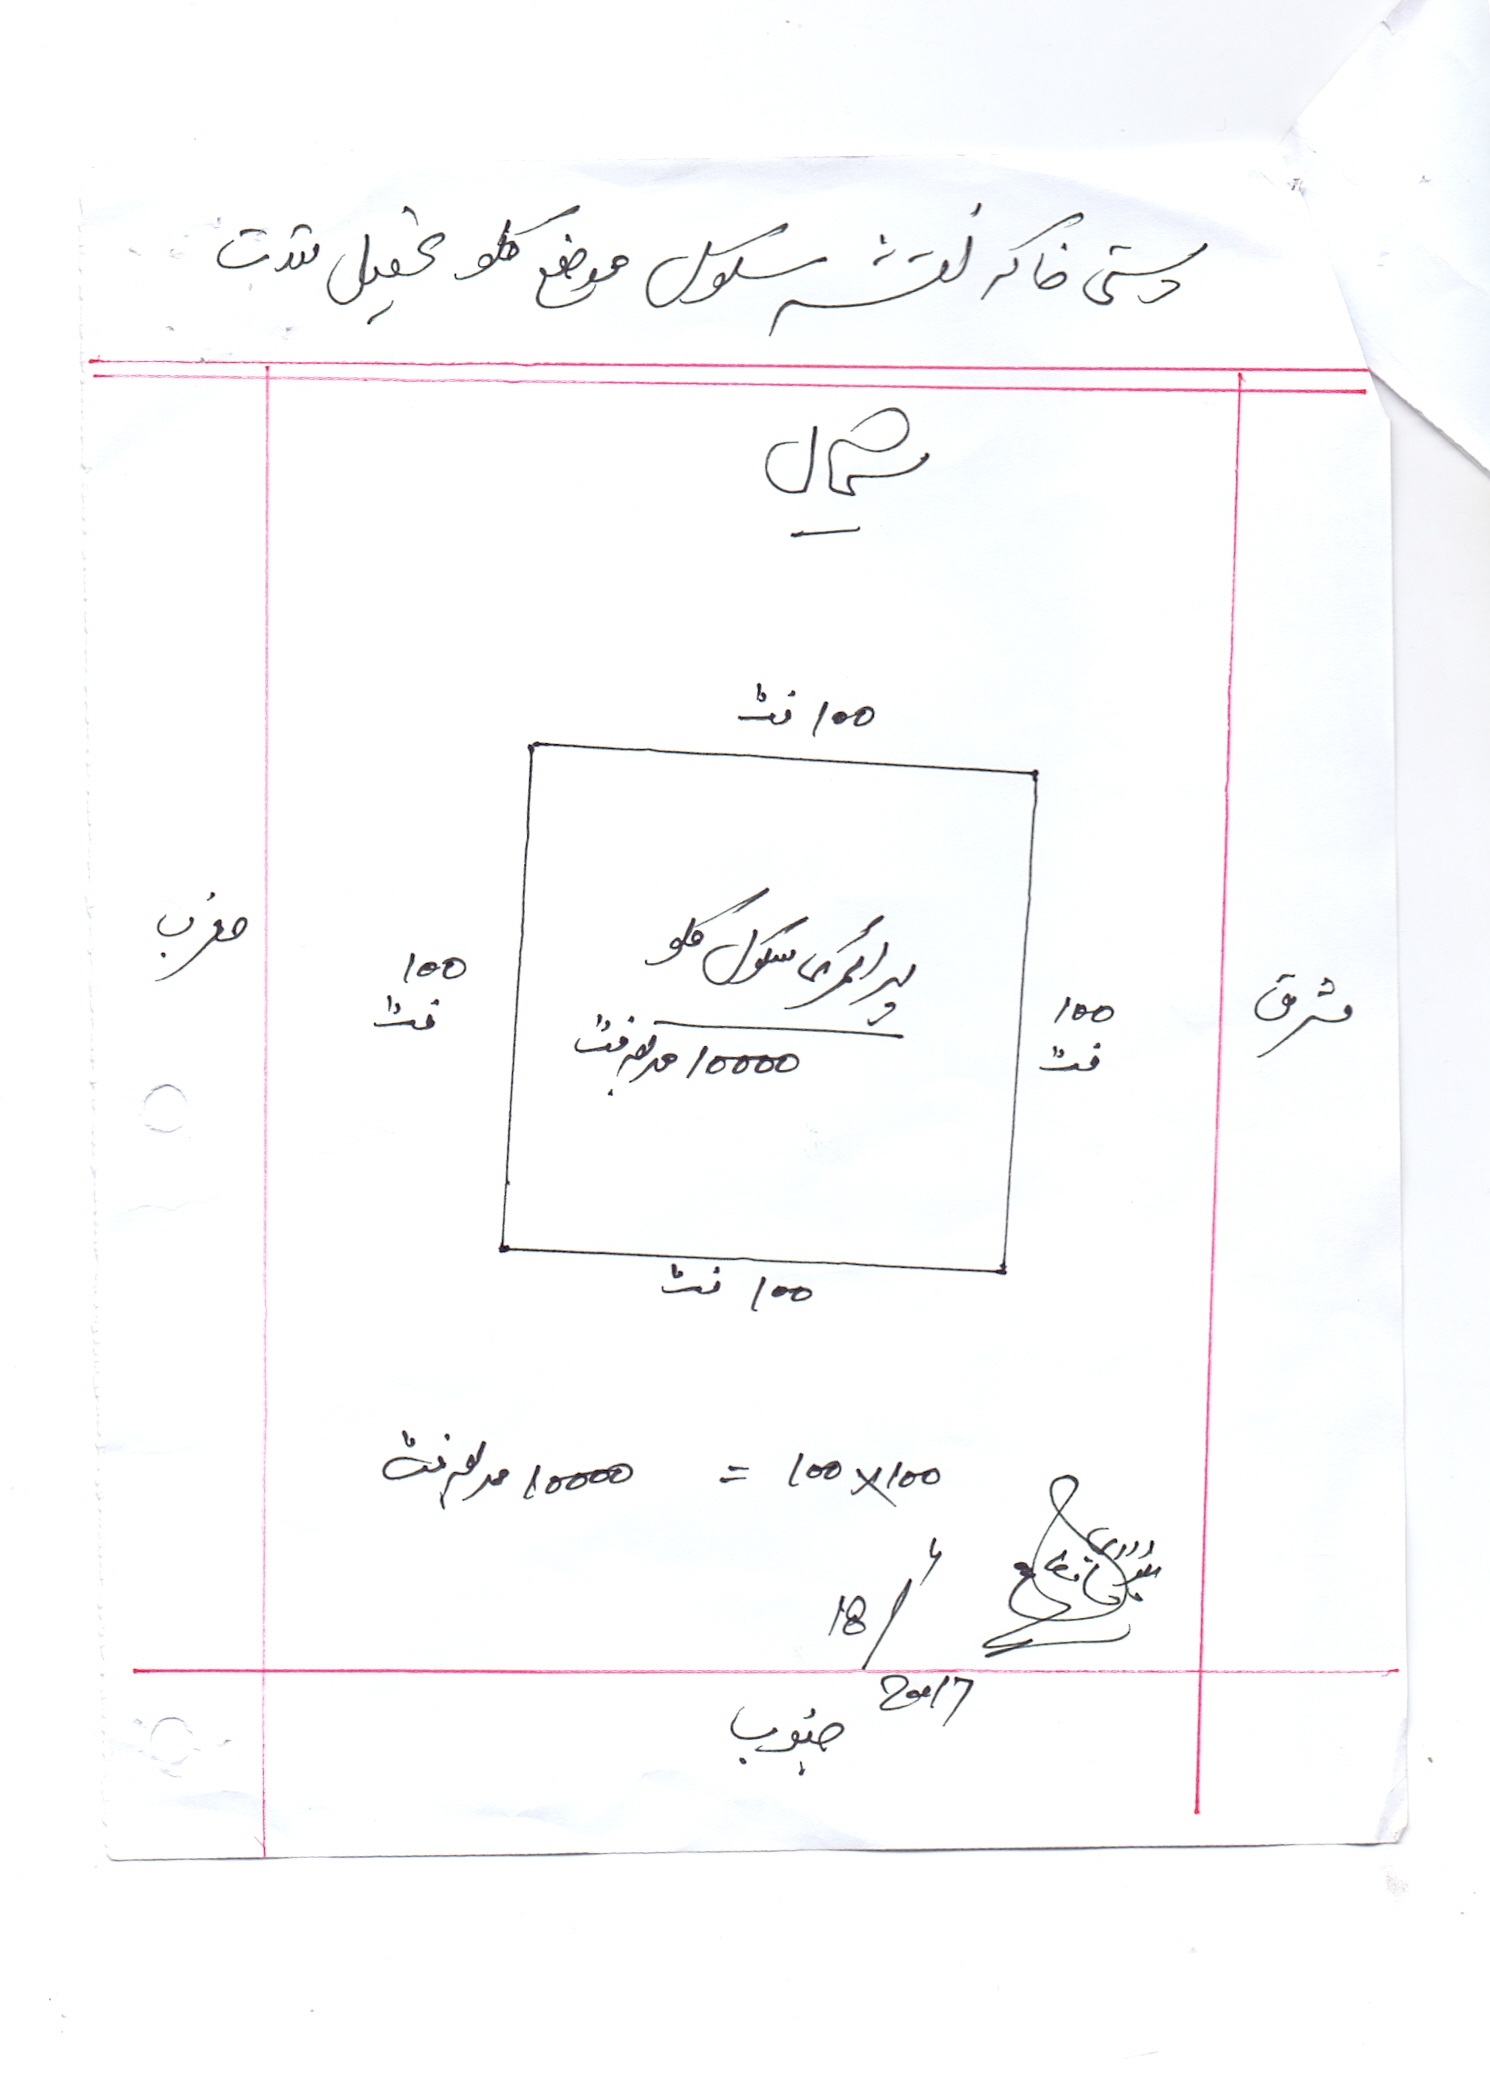 دستی خاکہ نقشہ سکول موضع کلو تحصیل تربت
شمال
100 فٹ
مغرب
100
فٹ
پرائمری سکول کلو
10000 مربع فٹ
100
فٹ
مشرق
100 فٹ
100 x 100 = 10000 مربع فٹ
18/4
2017
جنوب